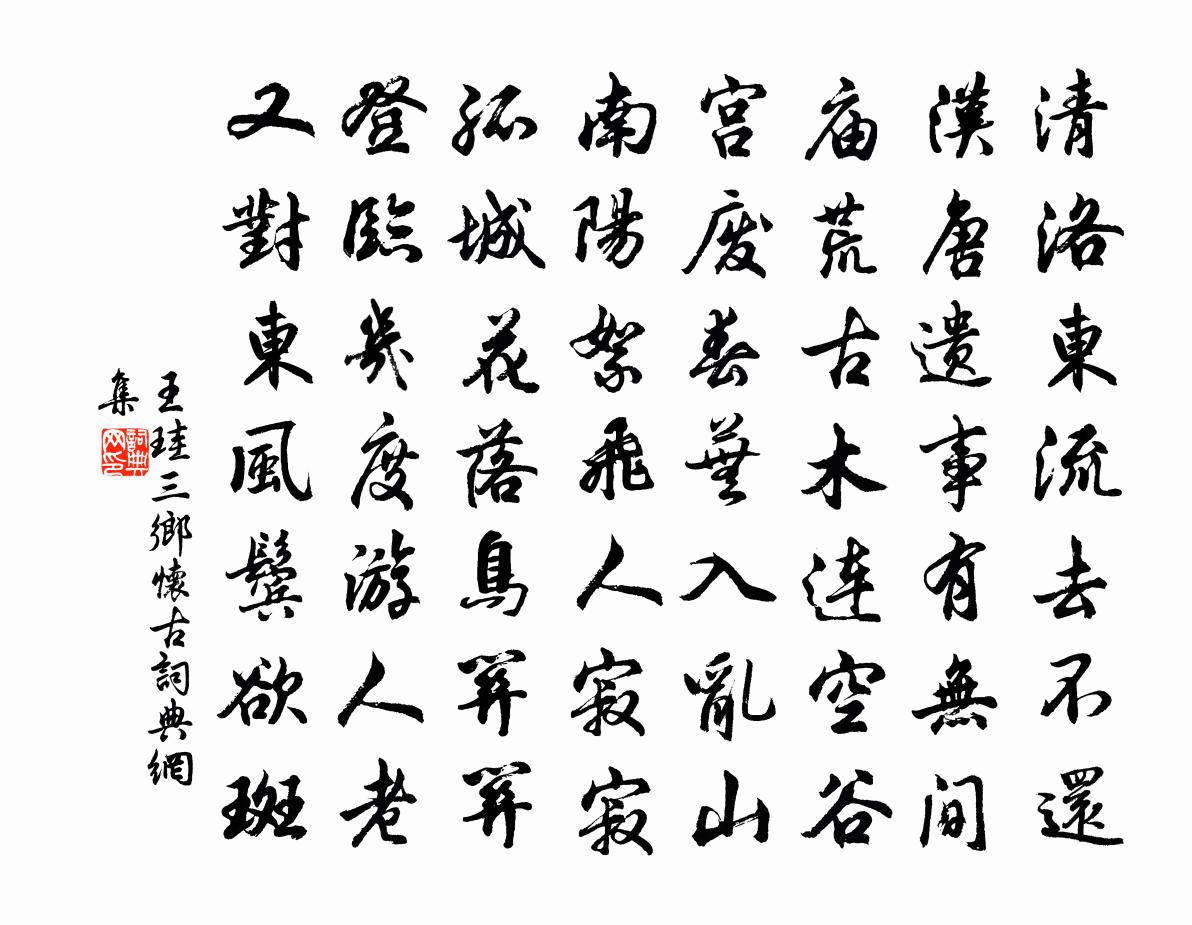 清洛東流去不還
漢唐遺事有無間
庙荒古木連空谷
宮廢春蕪入亂山
南陽絮飛人寂寂
孤城花落鳥關關
登臨幾度游人老
又對東風鬢欲斑
王珪三鄉懷古詞典網
集
詞典网印